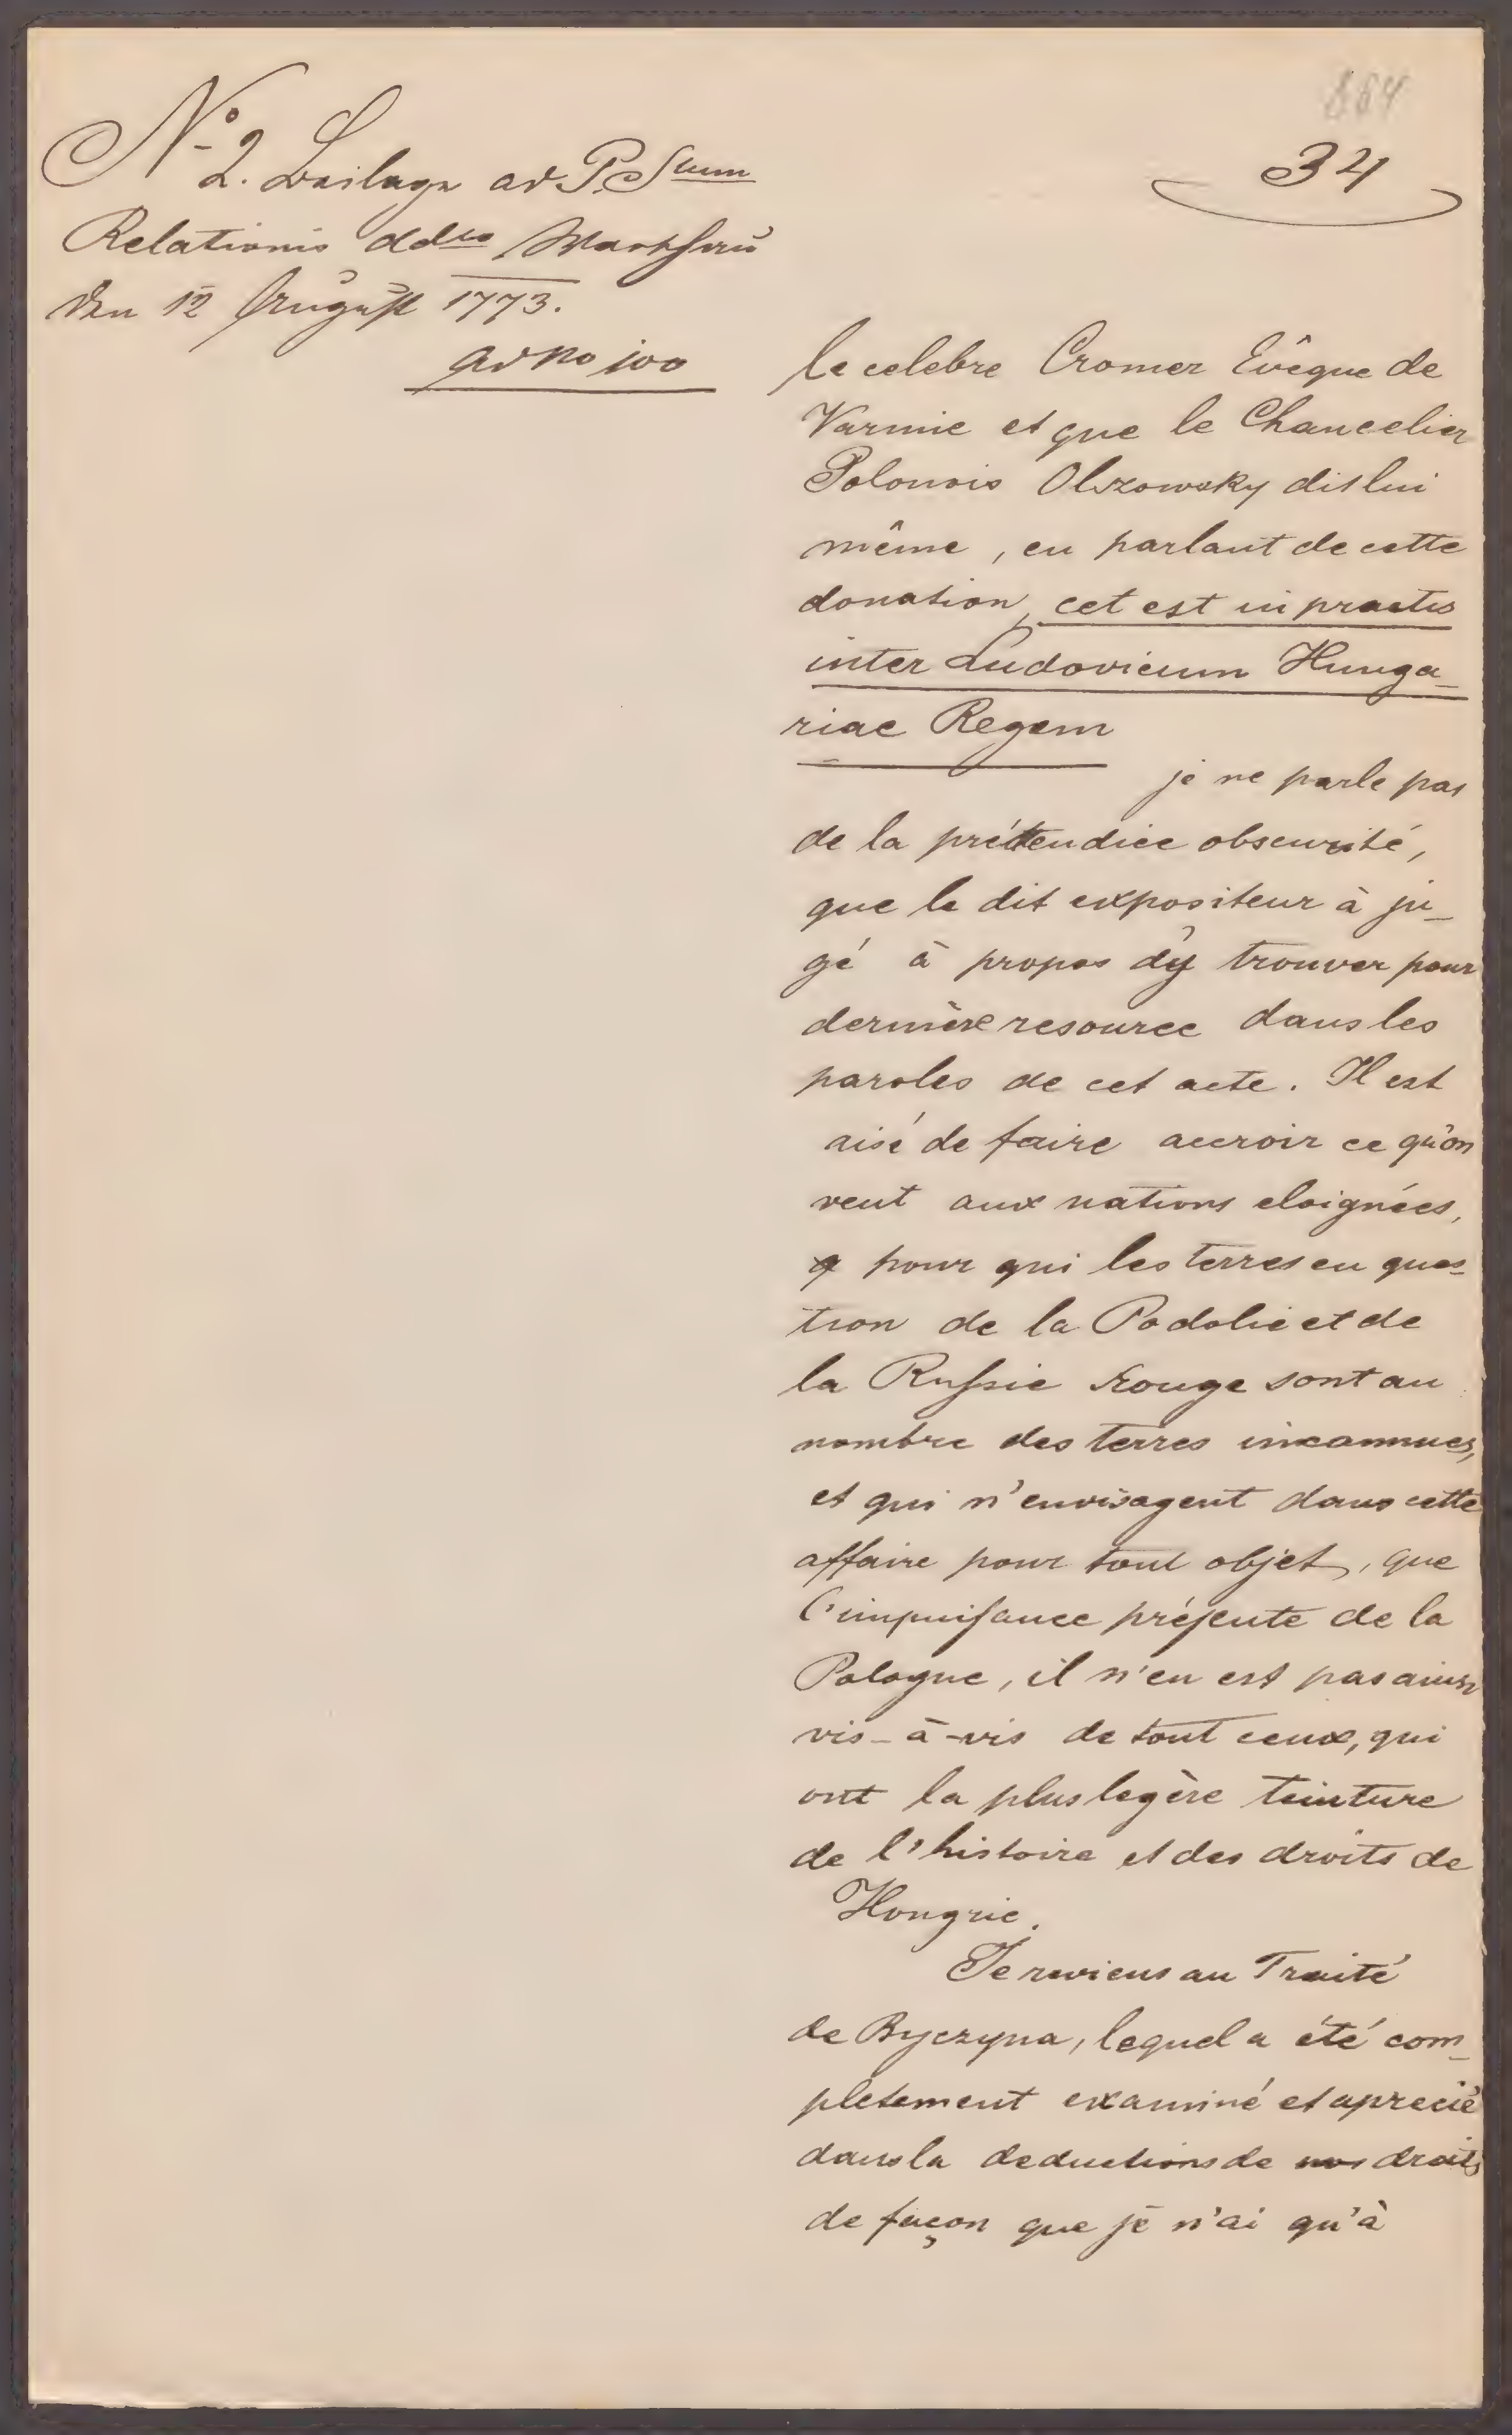 864
34
No 2. Beilage ad PSum
Relationis ddto Warschau
den 12 August 1773.
ad No 100
le celebre Cromer Evêque de
Varmie et que le Chancelier
Polonois Olszowsky dit lui
même, en parlant de cette
donation, cet est in practis
inter Ludovicum Hunga-
riae Regem
je ne parle pas
de la prétendüe obscurité,
que le dit expositeur à ju-
gé à propos d'y trouver pour
dernière resource dans les
paroles de cet acte. Il est
aisé de faire accroir ce qu'on
veut aux nations eloignées,
pour qui les terres en ques-
tion de la Podolie et de
la Russie rouge sont au
nombre des terres inconnues,
et qui n'envisagent dans cette
affaire pour tout objet, que
l'impuisance présente de la
Pologne, il n'en est pas ainsi
vis-à-vis de tout ceux, qui
ont la plus legère teinture
de l'histoire et des droits de
Hongrie.
Je reviens au Traité
de Byczyna, lequel a été com-
pletement examiné et aprecié
dans la deductions de nos droits
de façon que je n'ai qu'à